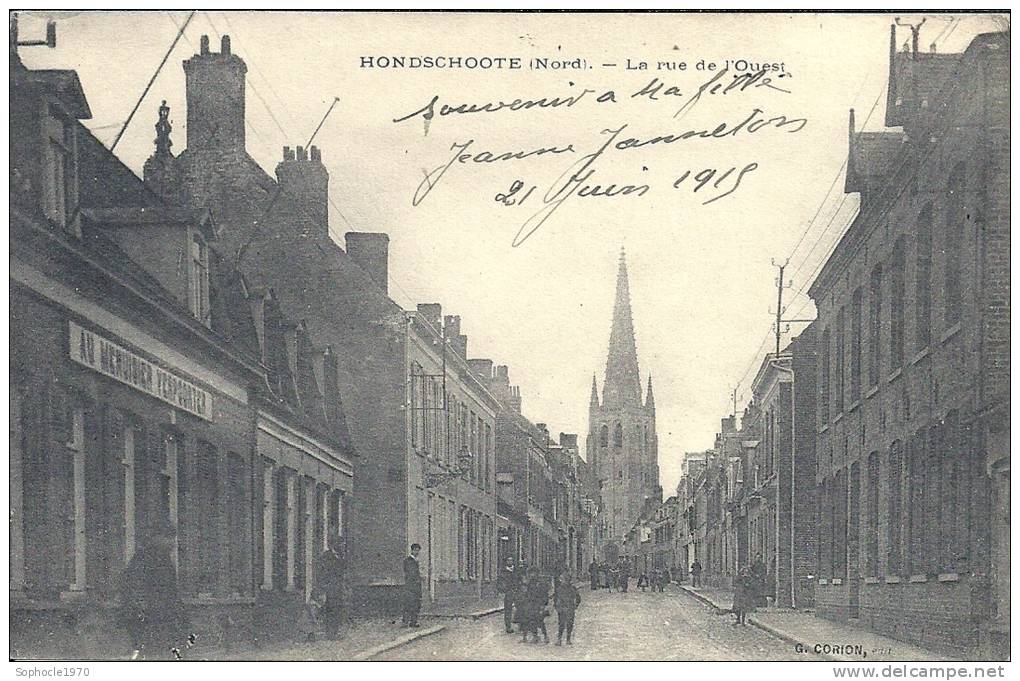 HONDSCHOOTE (Nord). — La rue de l'Ouest
Souvenir a Ma fille
Jeanne Janneton
21 Juin 1915
AU MENUISIER
G. CORION, édit
Sophocle1970
www.delcampe.net